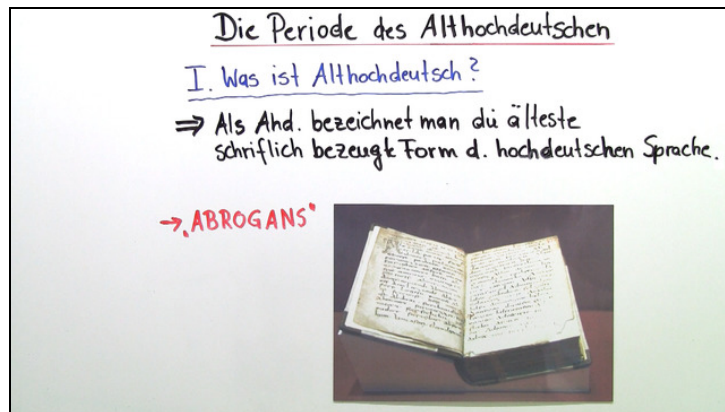 Die Periode des Althochdeutschen
I. Was ist Althochdeutsch?
⇒ Als Ahd. bezeichnet man die älteste
schriflich bezeugte Form d. hochdeutschen Sprache.
→ „ABROGANS"